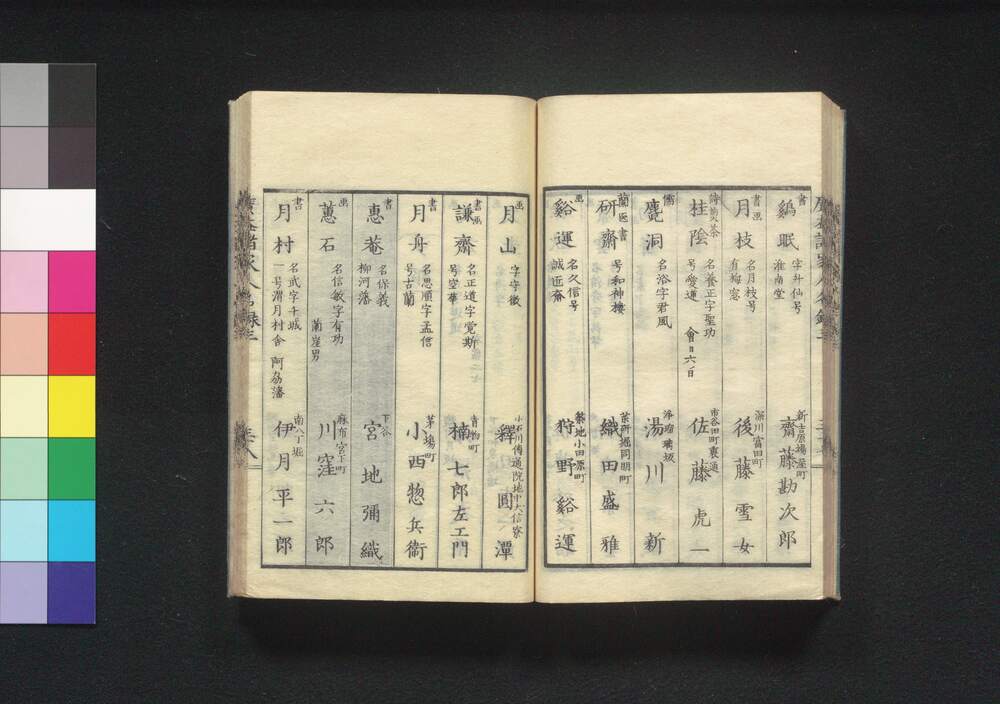 書 鷁眠 字升仙号
淮南堂 新吉原揚屋町 齋藤勘次郎
書画 月枝 名月枝号
有梅窓 深川富田町 後藤雪女
桂陰 名養正字聖功
号愛蓮 會日六日 市谷田町裏通 佐藤虎一
儒 麑洞 名浴字君風 浄瑠璃坂 湯川新
蘭医書 研齋 号和神楼 茶所堀同朋町 織田盛雅
画 谿運 名久信号
誠臣斎 築地小田原町 狩野谿運
画 月山 字字徹 小石川傳通院地中大信寮 釋圓潭
書画 謙齋 名正道字覚斯
号空華 青物町 楠七郎左エ門
書 月舟 名思順字孟信
号古蘭 茅場町 小西惣兵衛
書 惠菴 名保義
柳河藩 下谷 宮地彌織
画 蕙石 名信敏字有功
蘭崖男 麻布宮下町 川窪六郎
書 月村 名武字千城
一号渭月村舎 阿波藩 南八丁堀 伊月平一郎